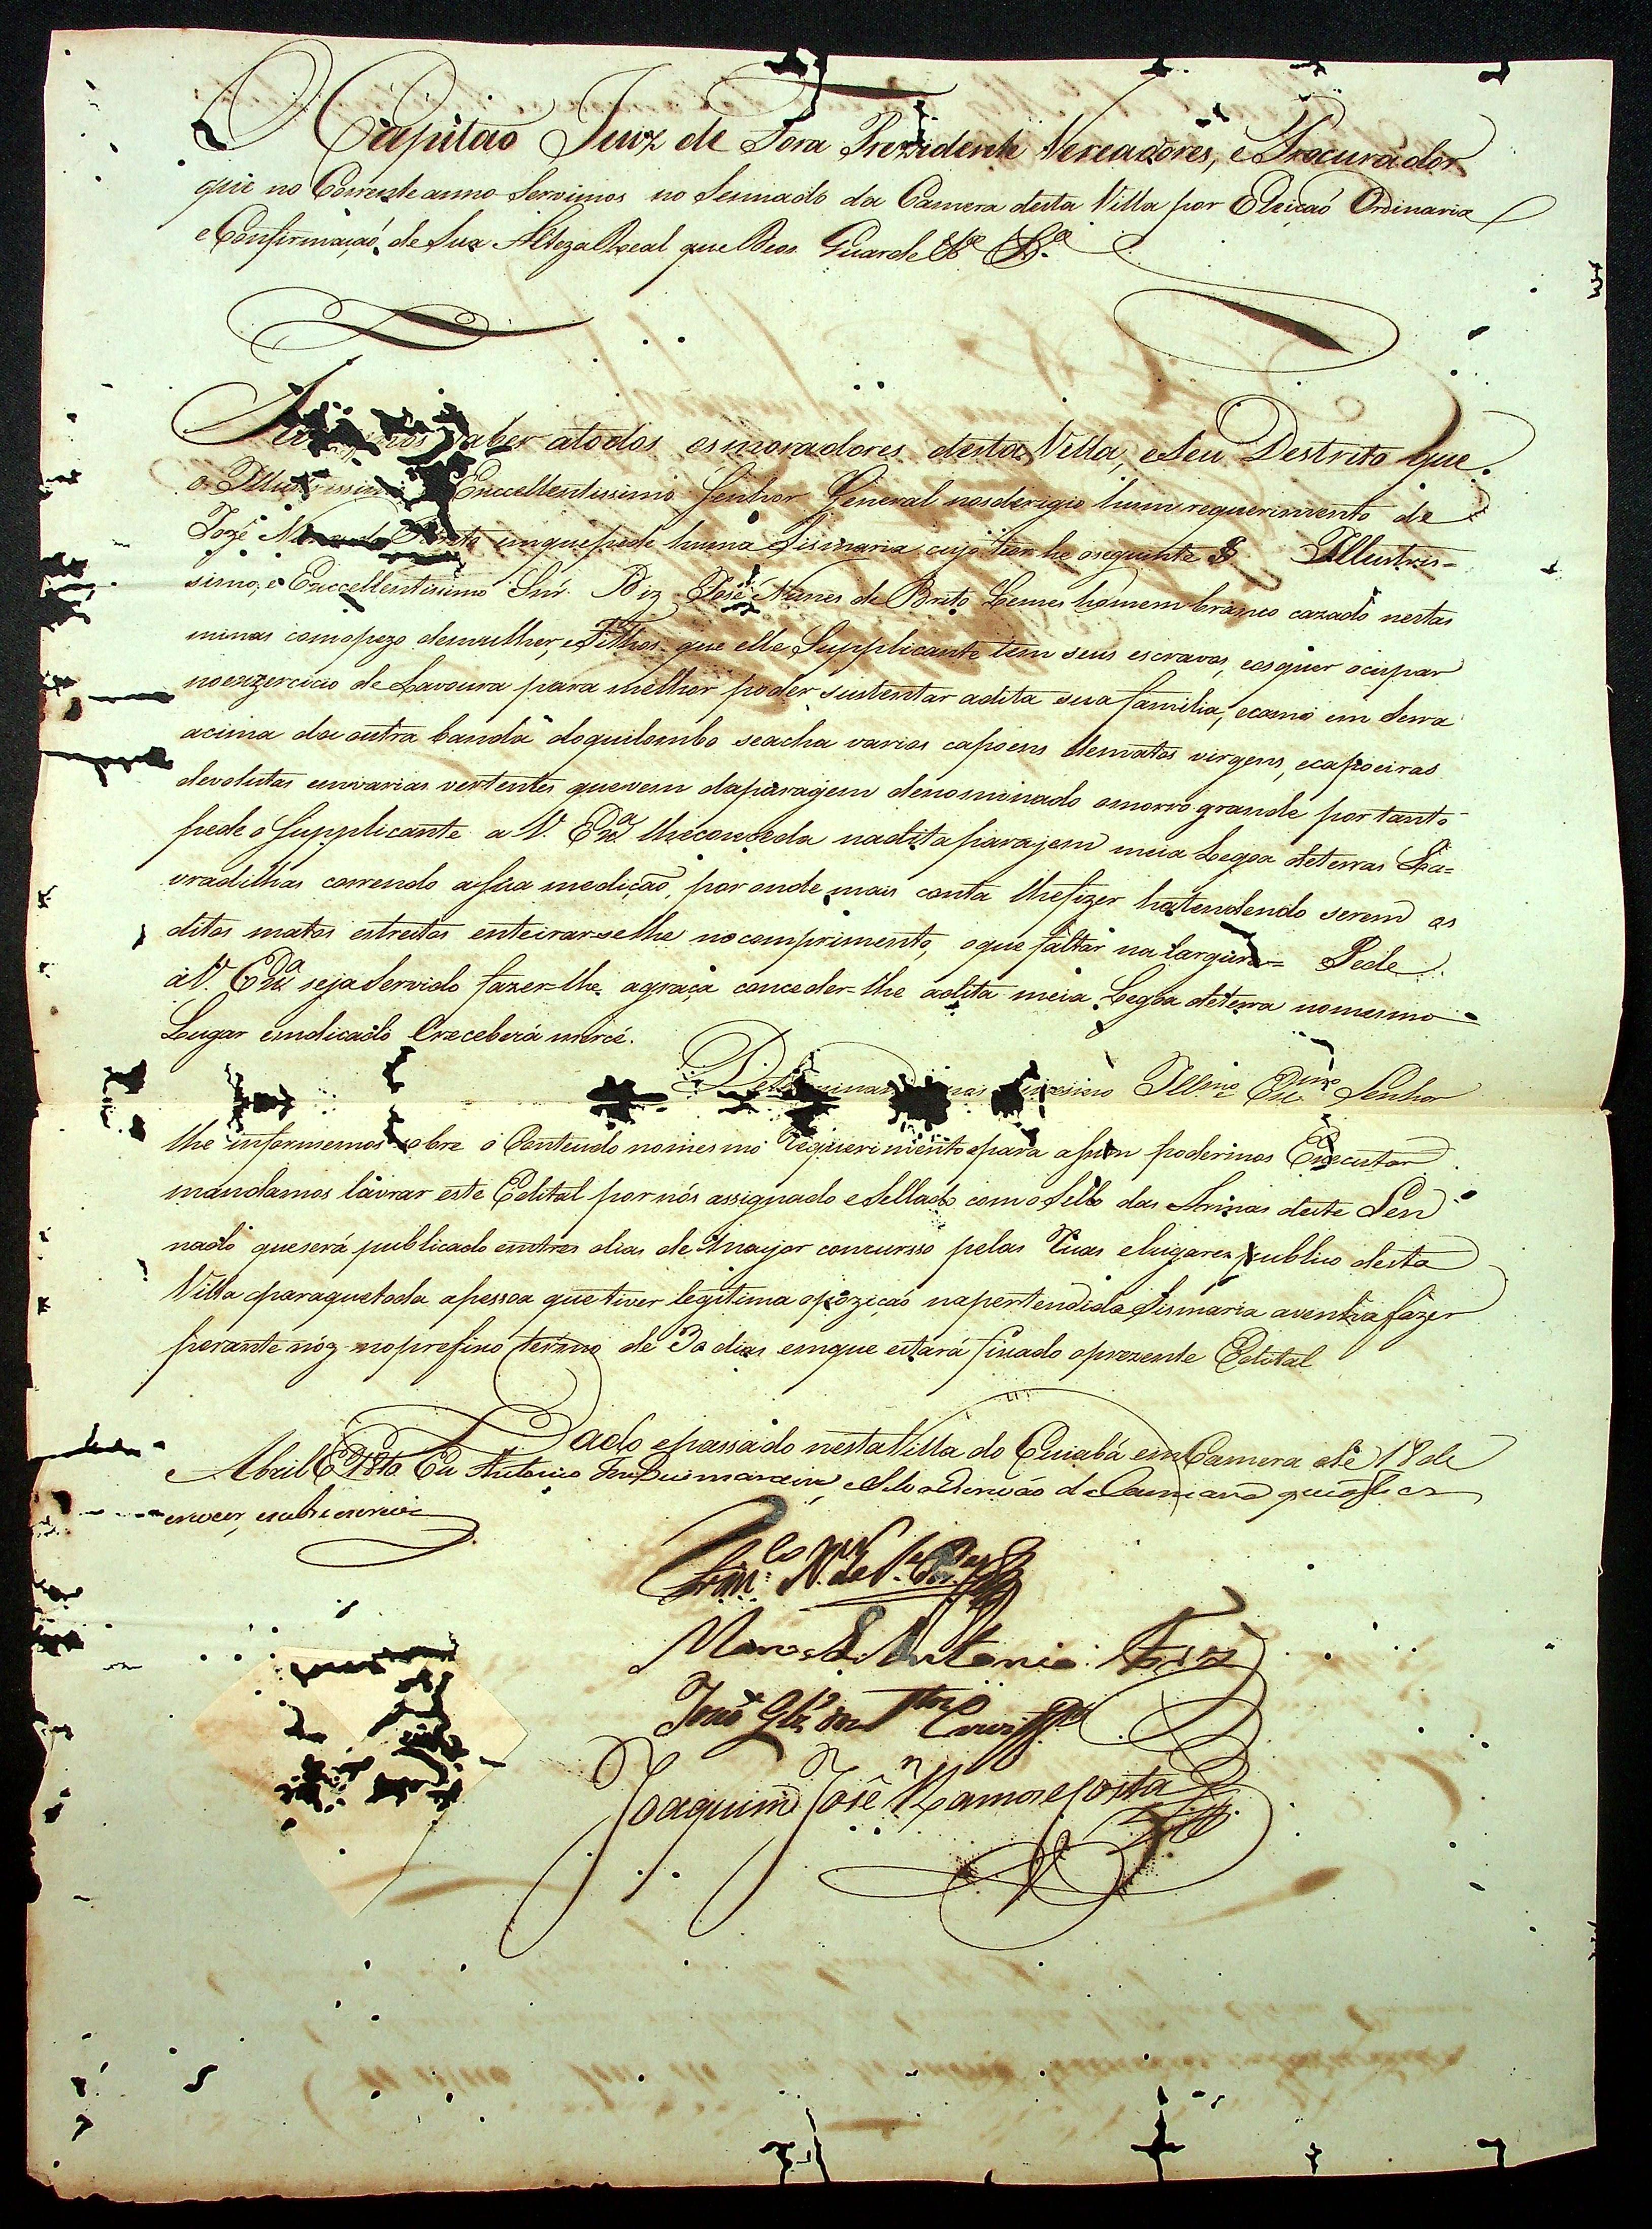 O Capitaõ Juiz de Fora Prezidente Vereadores, e Procurador
que no Corrente anno Servimos no Sennado da Camera desta Villa por Eleiçaõ Ordinaria
e Confirmaçaõ de Sua Alteza Real que Deos Guarde &ª &ª
Saber atodos osmoradores desta Villa, eSeu Destrito que
o Excellentissimo Senhor General nosderigio hum requerimento de
Jozé emquepede huma Sismaria cujo he oseguinte Illustris=
simo, e Exccellentissimo Snr. Diz José Nunes de Brito Lemes homem branco cazado nestas
minas comopezo demulher, eFilhos que elle Supplicante tem seus escravos, eosquer ocupar
noexzercicio de Lavoura para melhor poder sustentar adita sua familia, ecomo em Serra
acima da outra banda doquilombo seacha varios capoens dematos virgens, ecapoeiras
devolutas emvarias vertentes quevem daparagem denominado omorro grande por tanto
pede o Supplicante a V. Exª lheconceda nadita paragem meia Legoa deterras La=
vradilhas correndo aSua medição, por onde mais conta lhefizer hatendendo serem os
ditos matos estreitos enteirarselhe nocomprimento, oque faltar na largura= Pede
áV. Exª seja Servido fazer=lhe agraça conceder=lhe adita meia Legoa deterra nomesmo
Lugar endicado Ereceberá mercé.
Illmo Exmo Senhor
lhe informemos sobre o Conteudo nomesmo requerimento epara asim podermos Executar
mandamos lavrar este Edital pornós assignado eSellado como Sello das Armas deste Sen
nado queserá publicado emtres dias de mayor concursso pelas Ruas elugares publico desta
Villa eparaquetoda apessoa quetiver legitima opoziçaõ napertendida Sismaria avenha fazer
perante nóz noprefixo termo de 30 dias emque estará fixado oprezente Edital
Dado epassado nestaVilla do Cuiabá emCamera de 18 de
Abril Eu Antonio Escrivaõ da Camara quiofis
escrever, esubscrevi
Marcos Antonio
Joaquim José Ramos eCosta